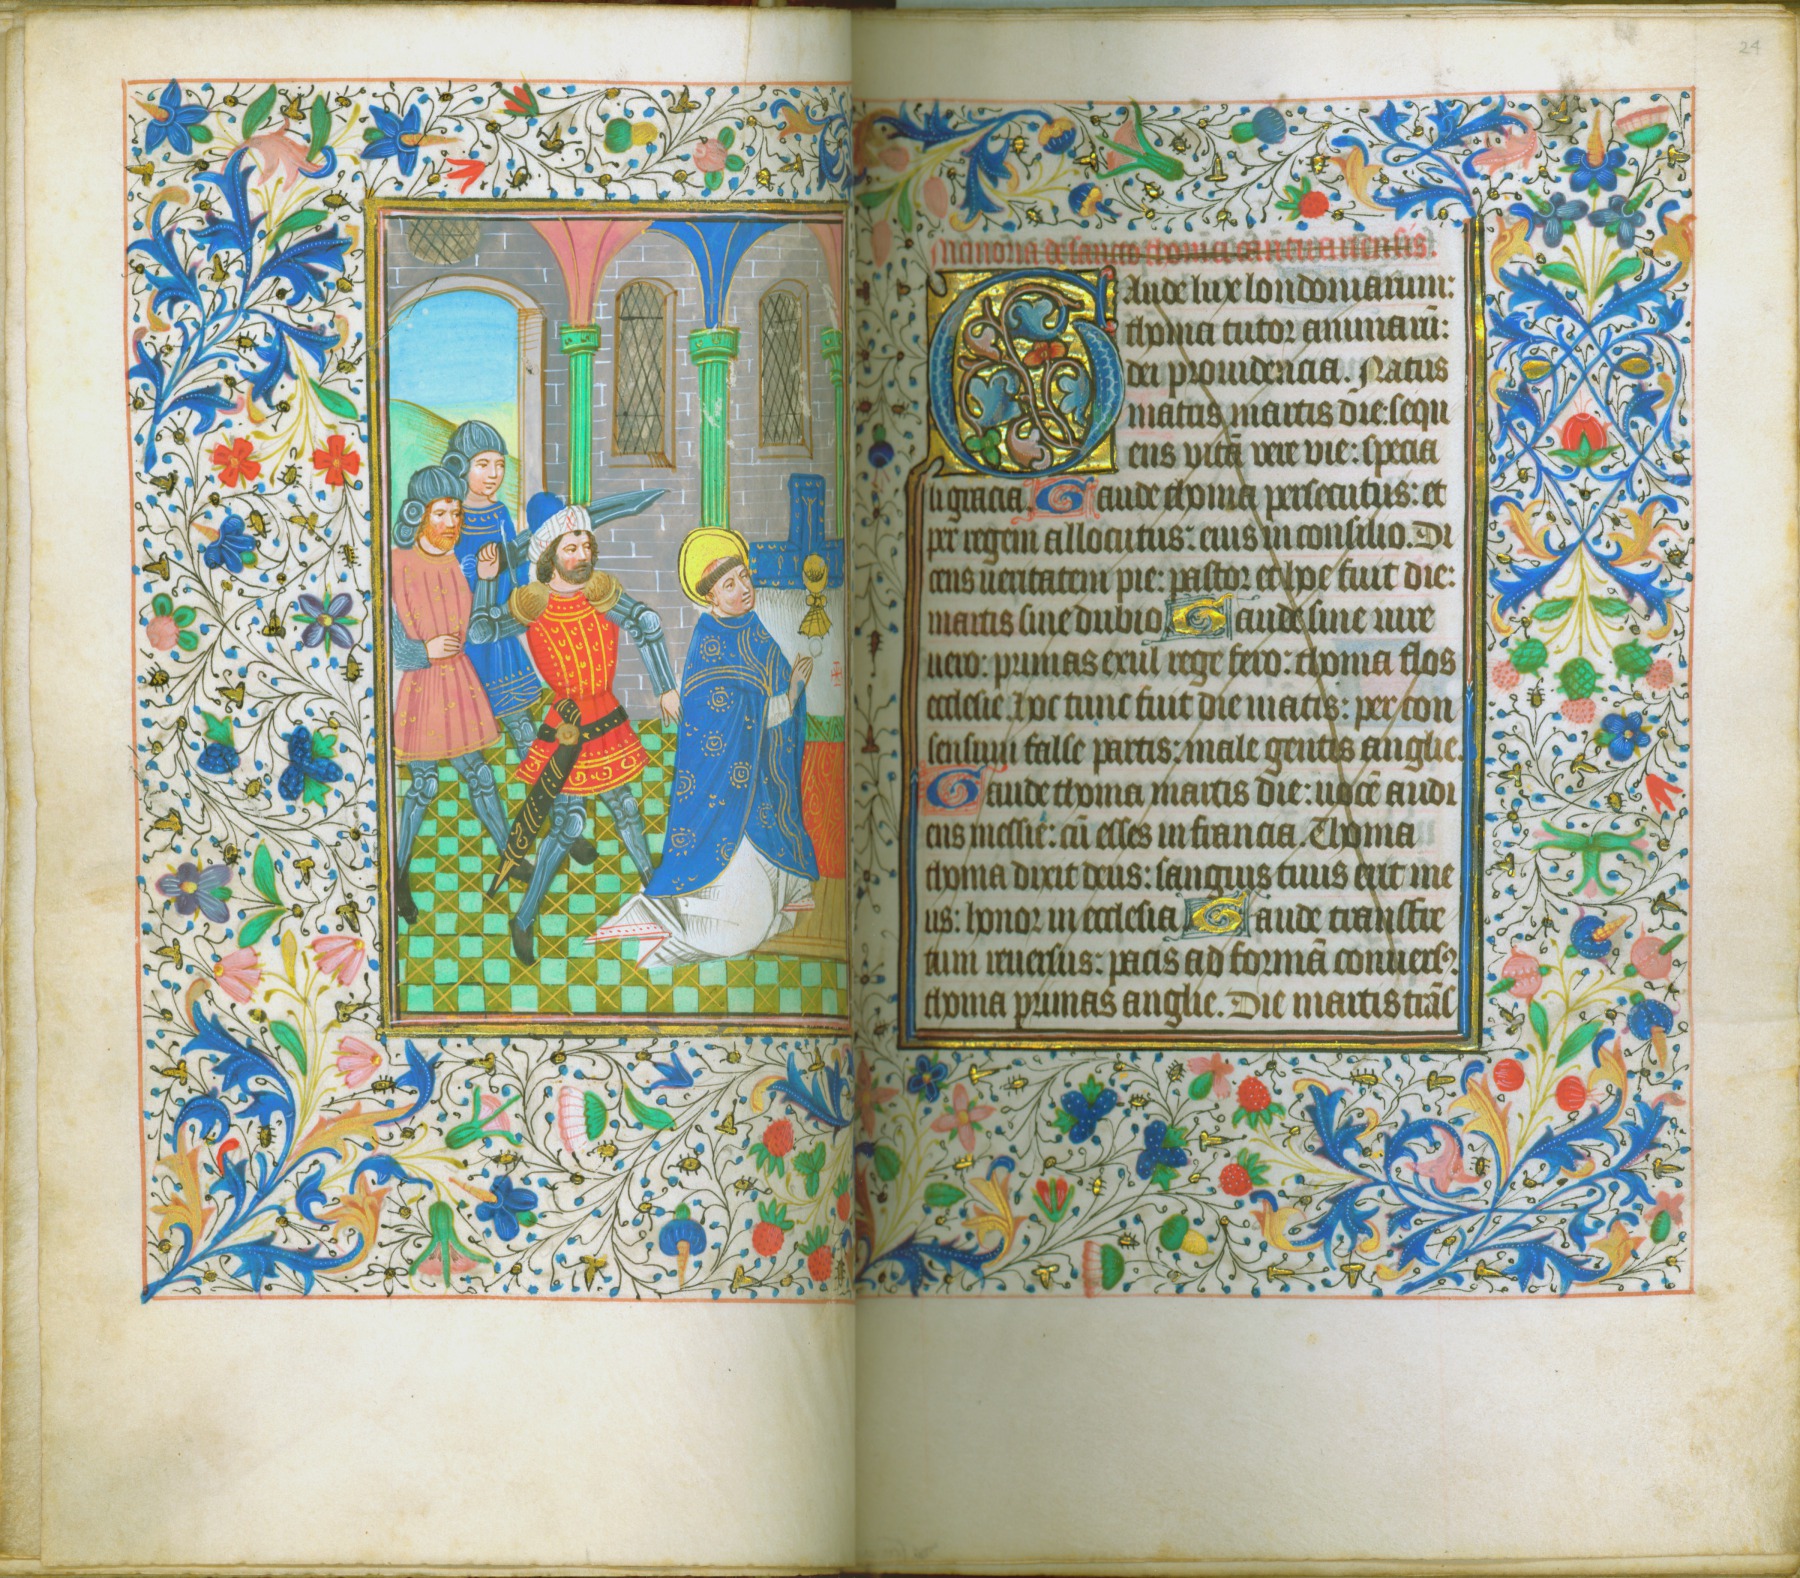 24
Memoria de sancto thoma cantuariensis.
Gaude lux londoniarum:
thoma tutor animarū:
dei prouidencia. Natus
matris martis die: sequ
ens vitā vere vie: specia
li gracia. Gaude thoma persecutus: et
per regem allocutus: eius in consilio. Di
cens ueritatem pie: pastor et hoc fuit die:
martis sine dubio Gaude sine iure
uero: primas exul rege fero: thoma flos
ecclesie hoc tunc fuit die matis: per con
sensum false partis: male gentis anglie.
Gaude thoma martis die: uocē audi
ens messie: cū esses in francia. Thoma
thoma dixit deus: sanguis tuus erit me
us: honor in ecclesia Gaude transfre
tum reuersus: pacis ad formā conuersꝰ.
thoma primas anglie. Die martis trās